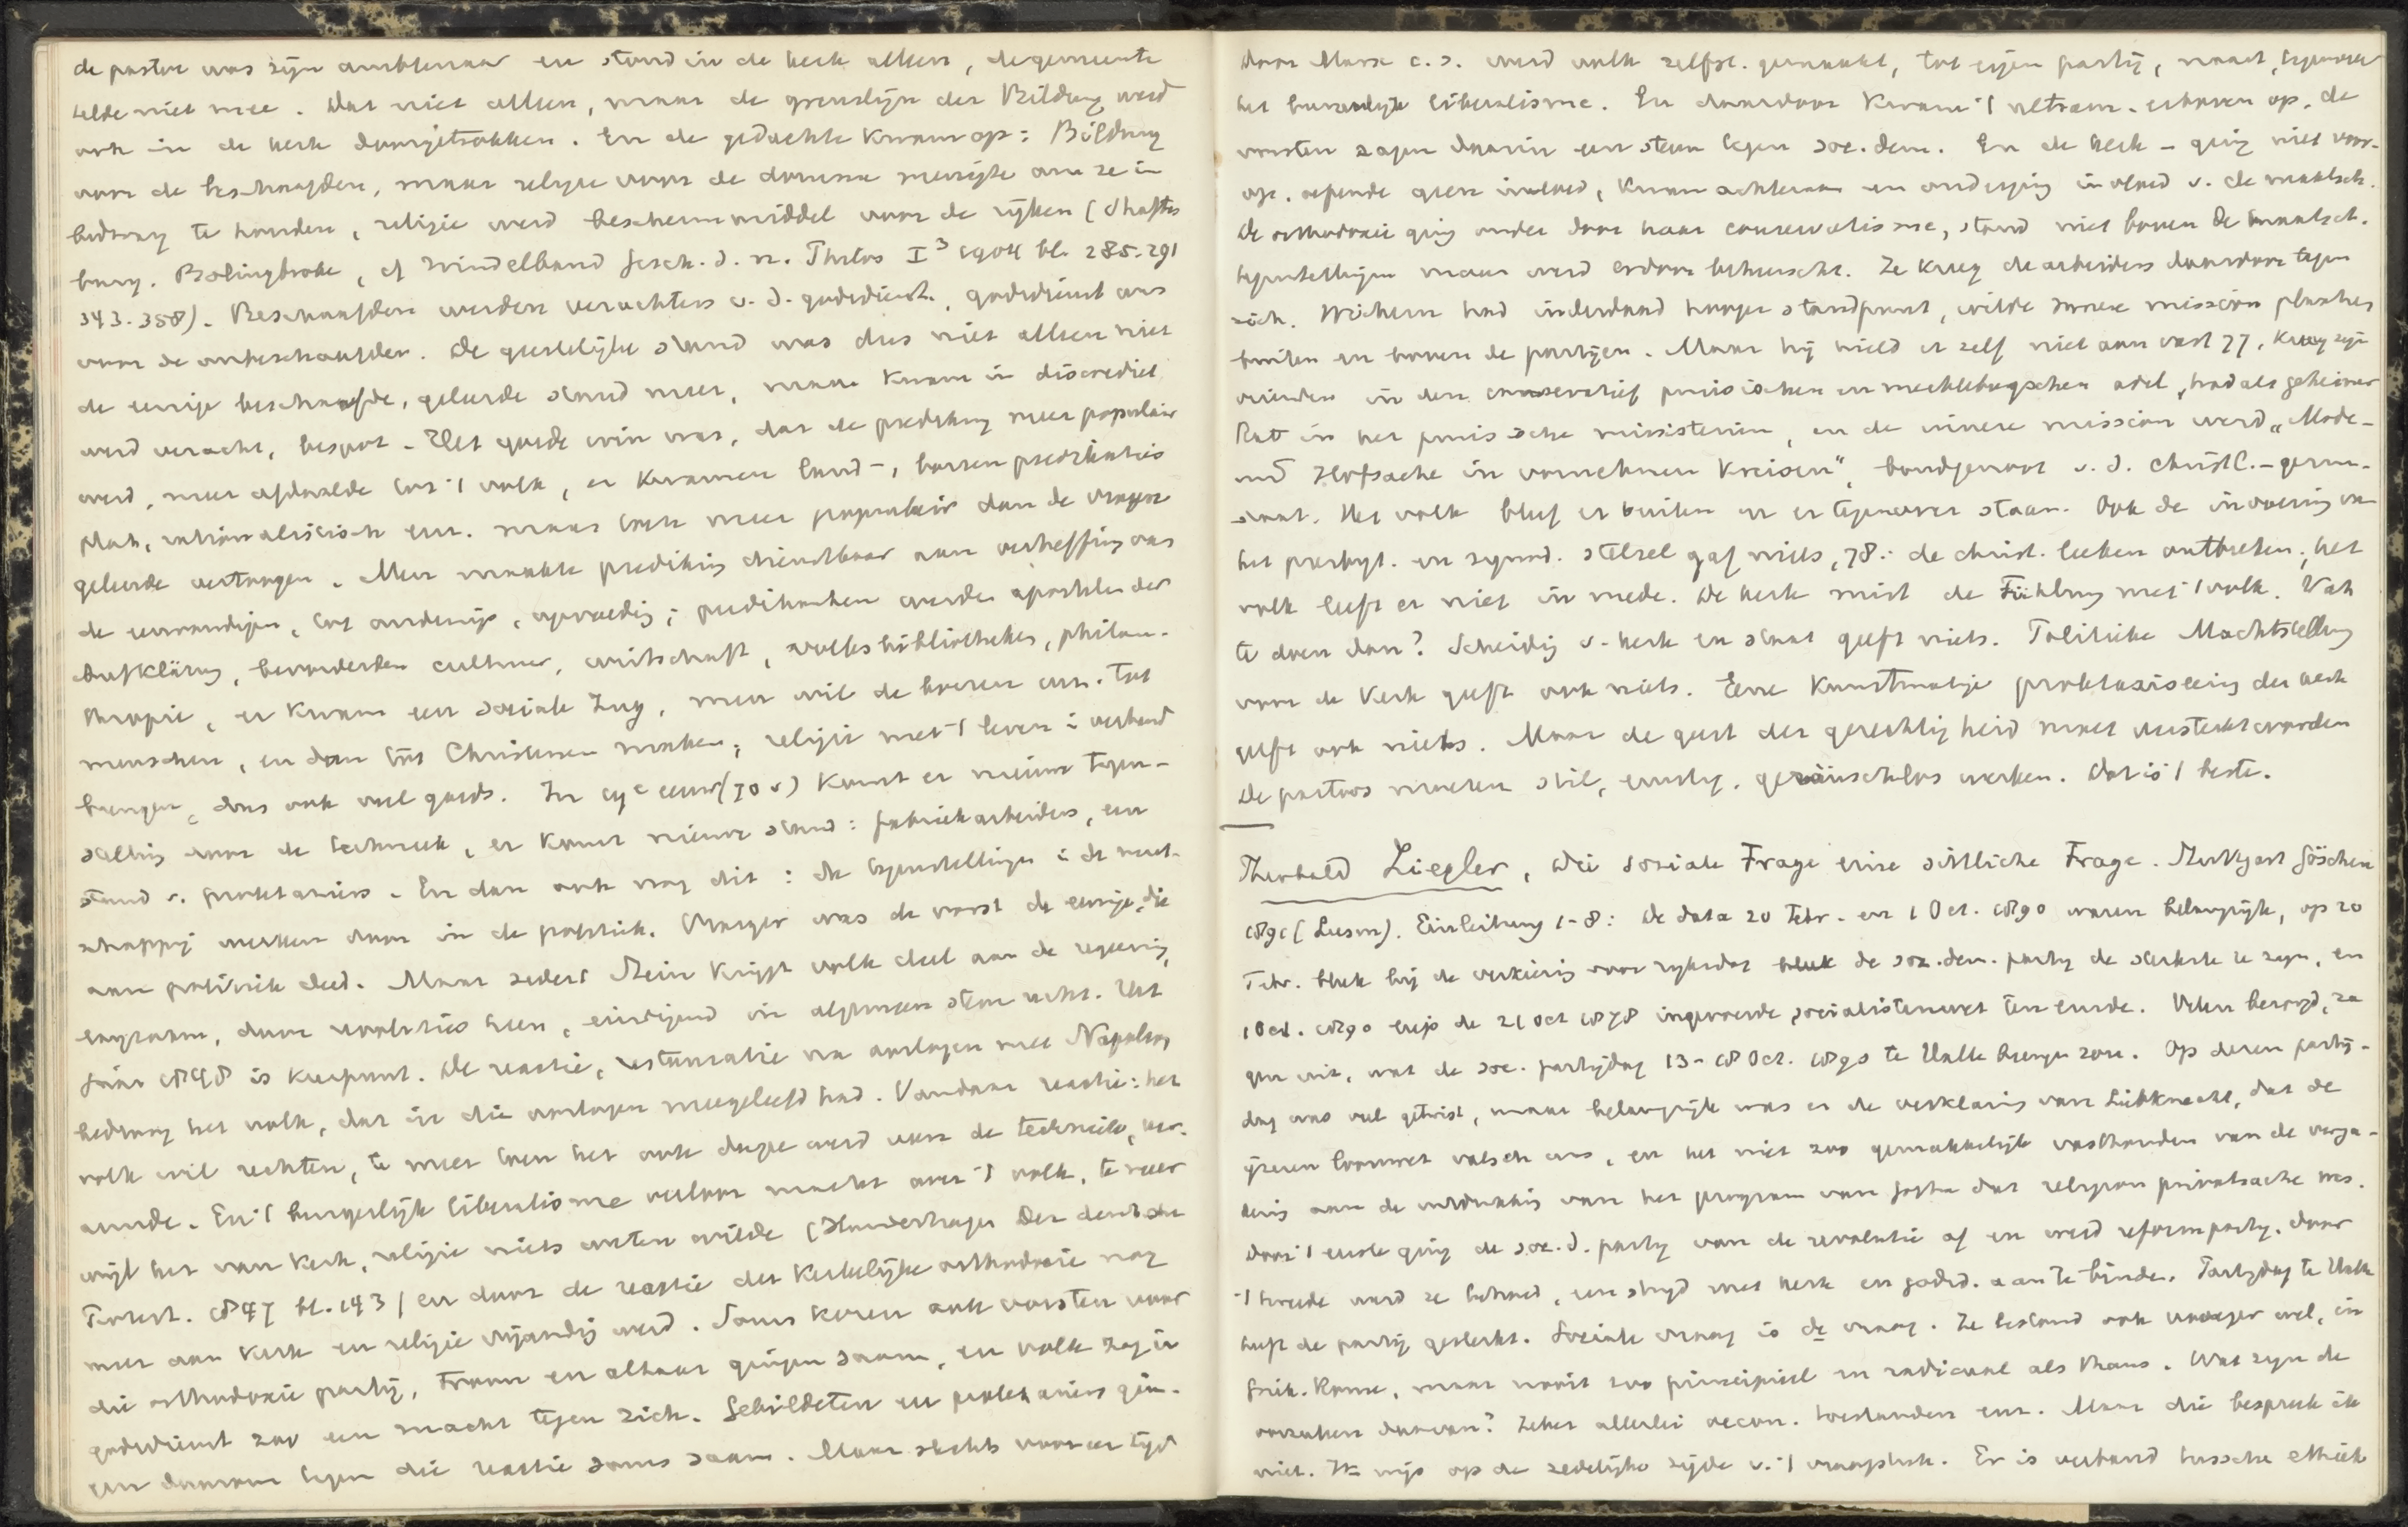 de pastor was zijn ambtenaar en stond in de kerk alleen, de gemeente
telde niet mee. Dat niet alleen, maar de grenslijn der Bildung werd
ook in de kerk doorgetrokken. En de gedachte kwam op: Bildung
voor de beschaafden, maar religie voor de domme menigte om ze in
bedwang te houden, religie werd beschermmiddel voor de rijken (Shaftes
bury. Bolingbroke, cf Windelband Gesch. d. n. Philos I³ 1904 bl. 285-291
343-358). Beschaafden werden verachters v. d. godsdienst, godsdienst was
voor de onbeschaafden. De geestelijke stand was dus niet alleen niet
de eenige beschaafde, geleerde stand meer, maar kwam in discrediet
werd veracht, bespot. Het goede erin was, dat de prediking meer populair
werd, meer afdaalde tot 't volk, er kwamen land-, boeren predikaties
plat, rationalistisch enz. maar toch meer populair dan de vroegere
geleerde vertoogen. Men maakte prediking dienstbaar aan verheffing van
de eenvoudigen, tot onderwijs, opvoeding; predikanten werden apostelen der
Aufklärung, bevorderden cultuur, volksbibliotheken, philan-
thropie, er kwam een sociale Zug, men wil de boeren eerst tot
menschen, en dan tot Christenen maken; religie met 't leven i verband
brengen, dus ook veel goeds. In 19e eeuw (70 v) komt er nieuwe tegen-
stelling door de techniek, er komt nieuwe stand: fabriekarbeiders, een
stand v. proletariers. En dan ook nog dit: de tegenstellingen i de maat-
schappij werken door in de politiek. Vroeger was de vorst de eenige, die
aan politiek deed. Maar sedert Stein krijgt volk deel aan de regeering,
langzaam, door revoluties heen, eindigend in algemeen stemrecht. Het
jaar 1848 is keerpunt. De reactie, restauratie na oorlogen met Napoleon
bedroog het volk, dat in die oorlogen meegeleefd had. Vandaar reactie: het
volk wil rechten, te meer toen het ook dupe werd van de techniek, ver-
armde. En 't burgerlijk liberalisme verloor macht over 't volk, te meer
wijl het van kerk, religie niets weten wilde (Hundeshagen Der deutsche
Protest. 1847 bl. 143) en door de reactie der kerkelijke orthodoxie nog
meer aan kerk en religie vijandig werd. Soms kozen ook vorsten voor
die orthodoxie partij, troon en altaar gingen saam, en volk zag in
godsdienst zoo een macht tegen zich. Gebildeten en proletariers gin-
gen daarom tegen die reactie soms saam. Maar slechts voor een tijd
Door Marx c.s. werd volk zelfst. gemaakt, tot eigen partij, naast, tegenover
het burgerlijk liberalisme. En daardoor kwam 't ultram. erboven op, de
vorsten zagen daarin een steun tegen soc. dem. En de kerk - ging niet voor-
op, oefende geen invloed, kwam achteraan en onderging invloed v. de maatsch.
De orthodoxie ging onder door haar conservatisme, stond niet boven de maatsch.
tegenstellingen maar werd erdoor beheerscht. Ze kreeg de arbeiders daardoor tegen
zich. Wichern had inderdaad hooger standpunt, wilde innere mission plaatsen
buiten en boven de partijen. Maar hij hield er zelf niet aan vast 77, kreeg zijn
vrienden in den conservatief pruisischen en mecklebugschen adel, had als geheimer
Rat in het pruisische ministerie, en de innere mission werd „Mode-
und Hofsache in vornehmen Kreisen", bondgenoot v. d. christl.-germ.
staat. Het volk bleef er buiten en er tegenover staan. Ook de invoering van
het presbyt. en synod. stelsel gaf niets, 78: de christ. leeken ontbreken; het
volk leeft er niet in mede. De kerk mist de Fühlung met 't volk. Wat
te doen dan? Scheiding v. kerk en staat geeft niets. Politieke Machtstellung
voor de Kerk geeft ook niets. Eene kunstmatige der kerk
geeft ook niets. Maar de geest der gerechtigheid moet versterkt worden
De pastors moeten stil, ernstig, geräuschlos werken. Dat is 't beste.
Theobald Ziegler, Die soziale Frage eine sittliche Frage. Stuttgart Göschen
1891 (Leesm). Einleitung 1-8: De data 20 Febr. en 1 Oct. 1890 waren belangrijk, op 20
Febr. bleek bij de verkiezing voor rijksdag de soz. dem. partij de sterkste te zijn, en
1 Oct. 1890 liep de 21 Oct 1878 ingevoerde socialistenwet ten einde. Velen bezorgd, za
gen uit, wat de soc. partijdag 13-18 Oct. 1890 te Halle brengen zou. Op dezen partij-
dag was veel getwist, maar belangrijk was er de verklaring van Liebknecht, dat de
ijzeren loonwet valsch was, en het niet zoo gemakkelijk vasthouden van de verga-
dering aan de uitdrukking van het program van Gotha dat religion privatsache was.
Door 't eerste ging de soc. d. partij van de revolutie af en werd reformpartij, door
't tweede werd ze behoed, een strijd met kerk en godsd. aan te binden. Partijdag te Halle
heeft de partij gesterkt. Sociale vraag is de vraag. Ze bestond ook vroeger wel, in
Griek. Rome, maar nooit zoo principieel en radicaal als thans. Wat zijn de
oorzaken daarvan? Zeker allerlei oecon. toestanden enz. Maar die bespreek ik
niet. Ik wijs op de zedelijke zijde v. 't vraagstuk. Er is verband tusschen ethiek